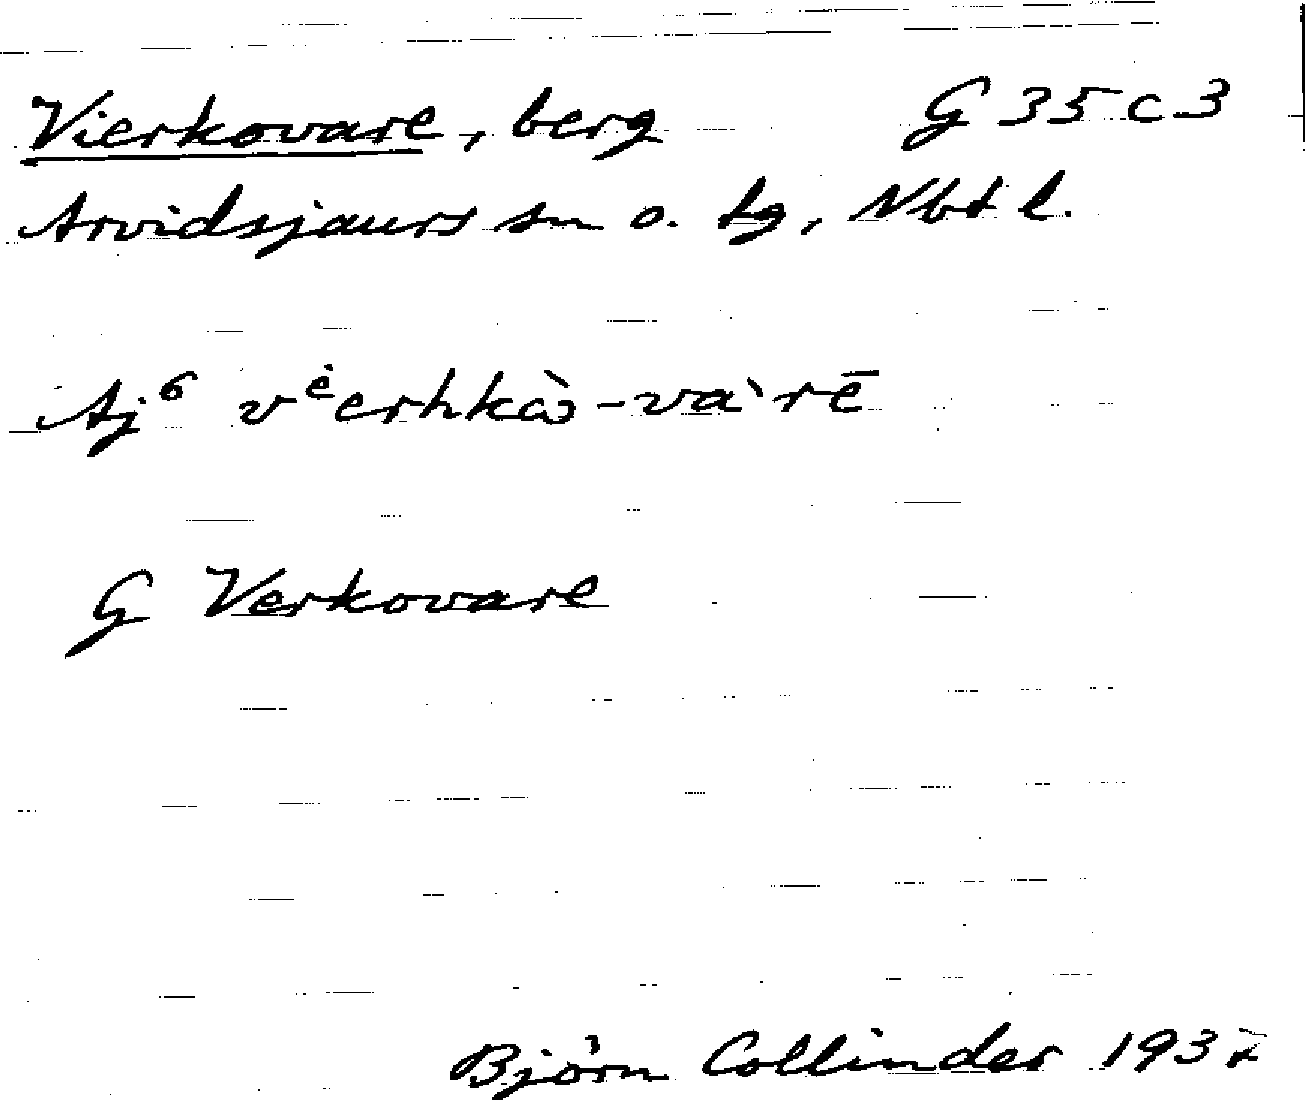 Vierkovare, berg G 35 c 3
Arvidsjaurs sn o. tg, Nbt l.
Aj⁶ vᵉ̀erhkɑ̀ɔ-vàrē
G Verkovare
Björn Collinder 1937